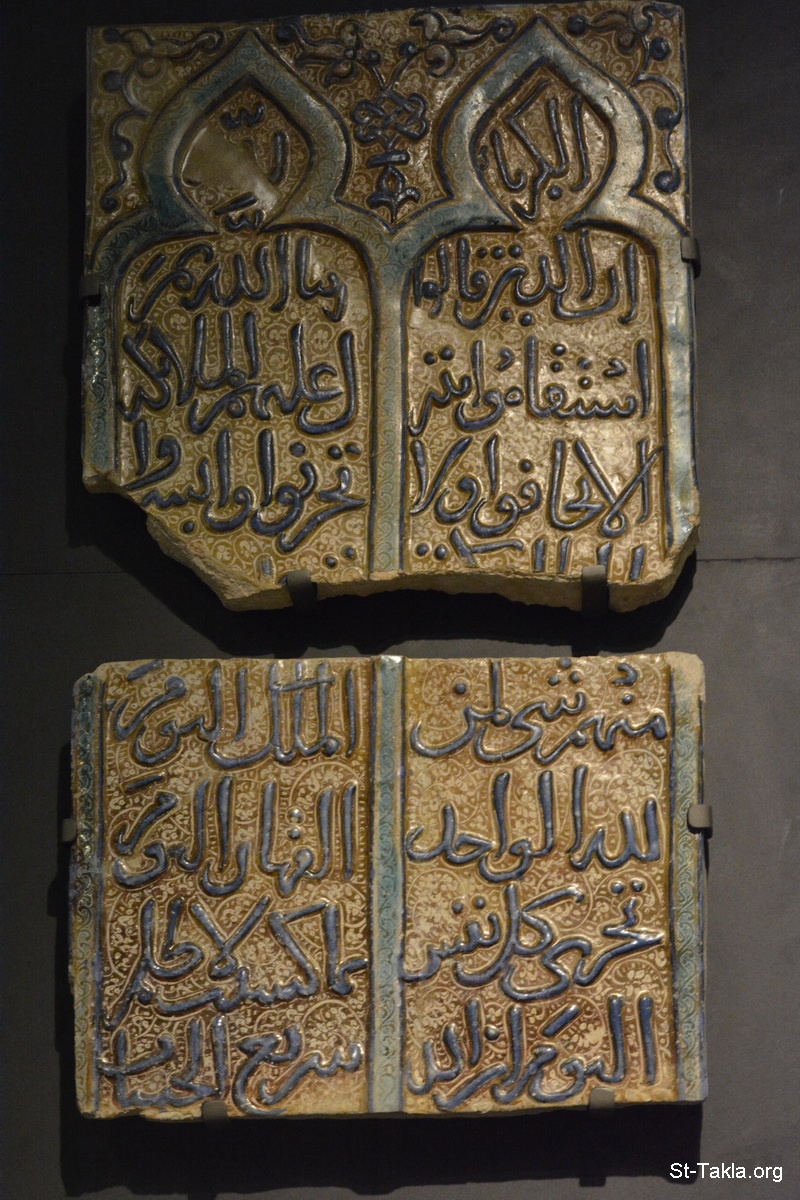 الكبريا لله
ان الذين قالوا ربنا الله ثم
استقاموا تتنزل عليهم الملائكة
الا تخافوا ولا تحزنوا وابشروا
منهم شي لمن الملك اليوم
لله الواحد القهار اليوم
تجزى كل نفس بما كسبت لا ظلم
اليوم ان الله سريع الحساب
St-Takla.org